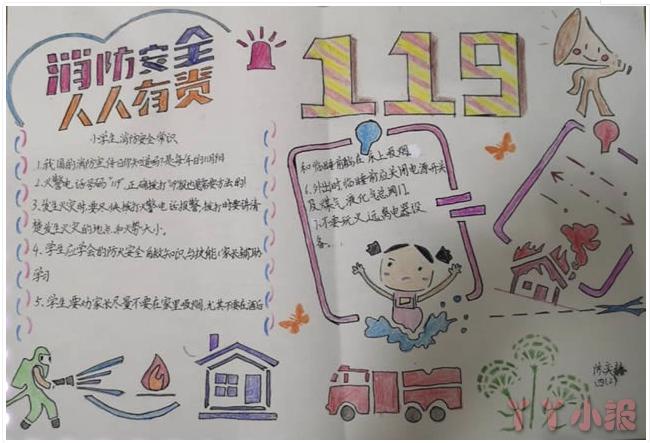 消防安全
人人有责
119
小学生消防安全常识
1.我国的消防宣传日你知道吗?是每年的11月9日
2.火警电话号码"119",正确拨打119报也需要方法的!
3.发生火灾时,要尽快拨打火警电话报警,拨打时要讲清
楚发生火灾的地点和火势大小。
4.学生应学会的防火安全自救知识与技能(家长辅助
学习
5.学生要劝家长尽量不要在家里吸烟,尤其不要在酒后
和临睡前躺在床上吸烟
6.外出时临睡前应关闭电源开关
及煤气液化气总阀门
7.不要玩火远离电器设
备...
四(2)
丫丫小报